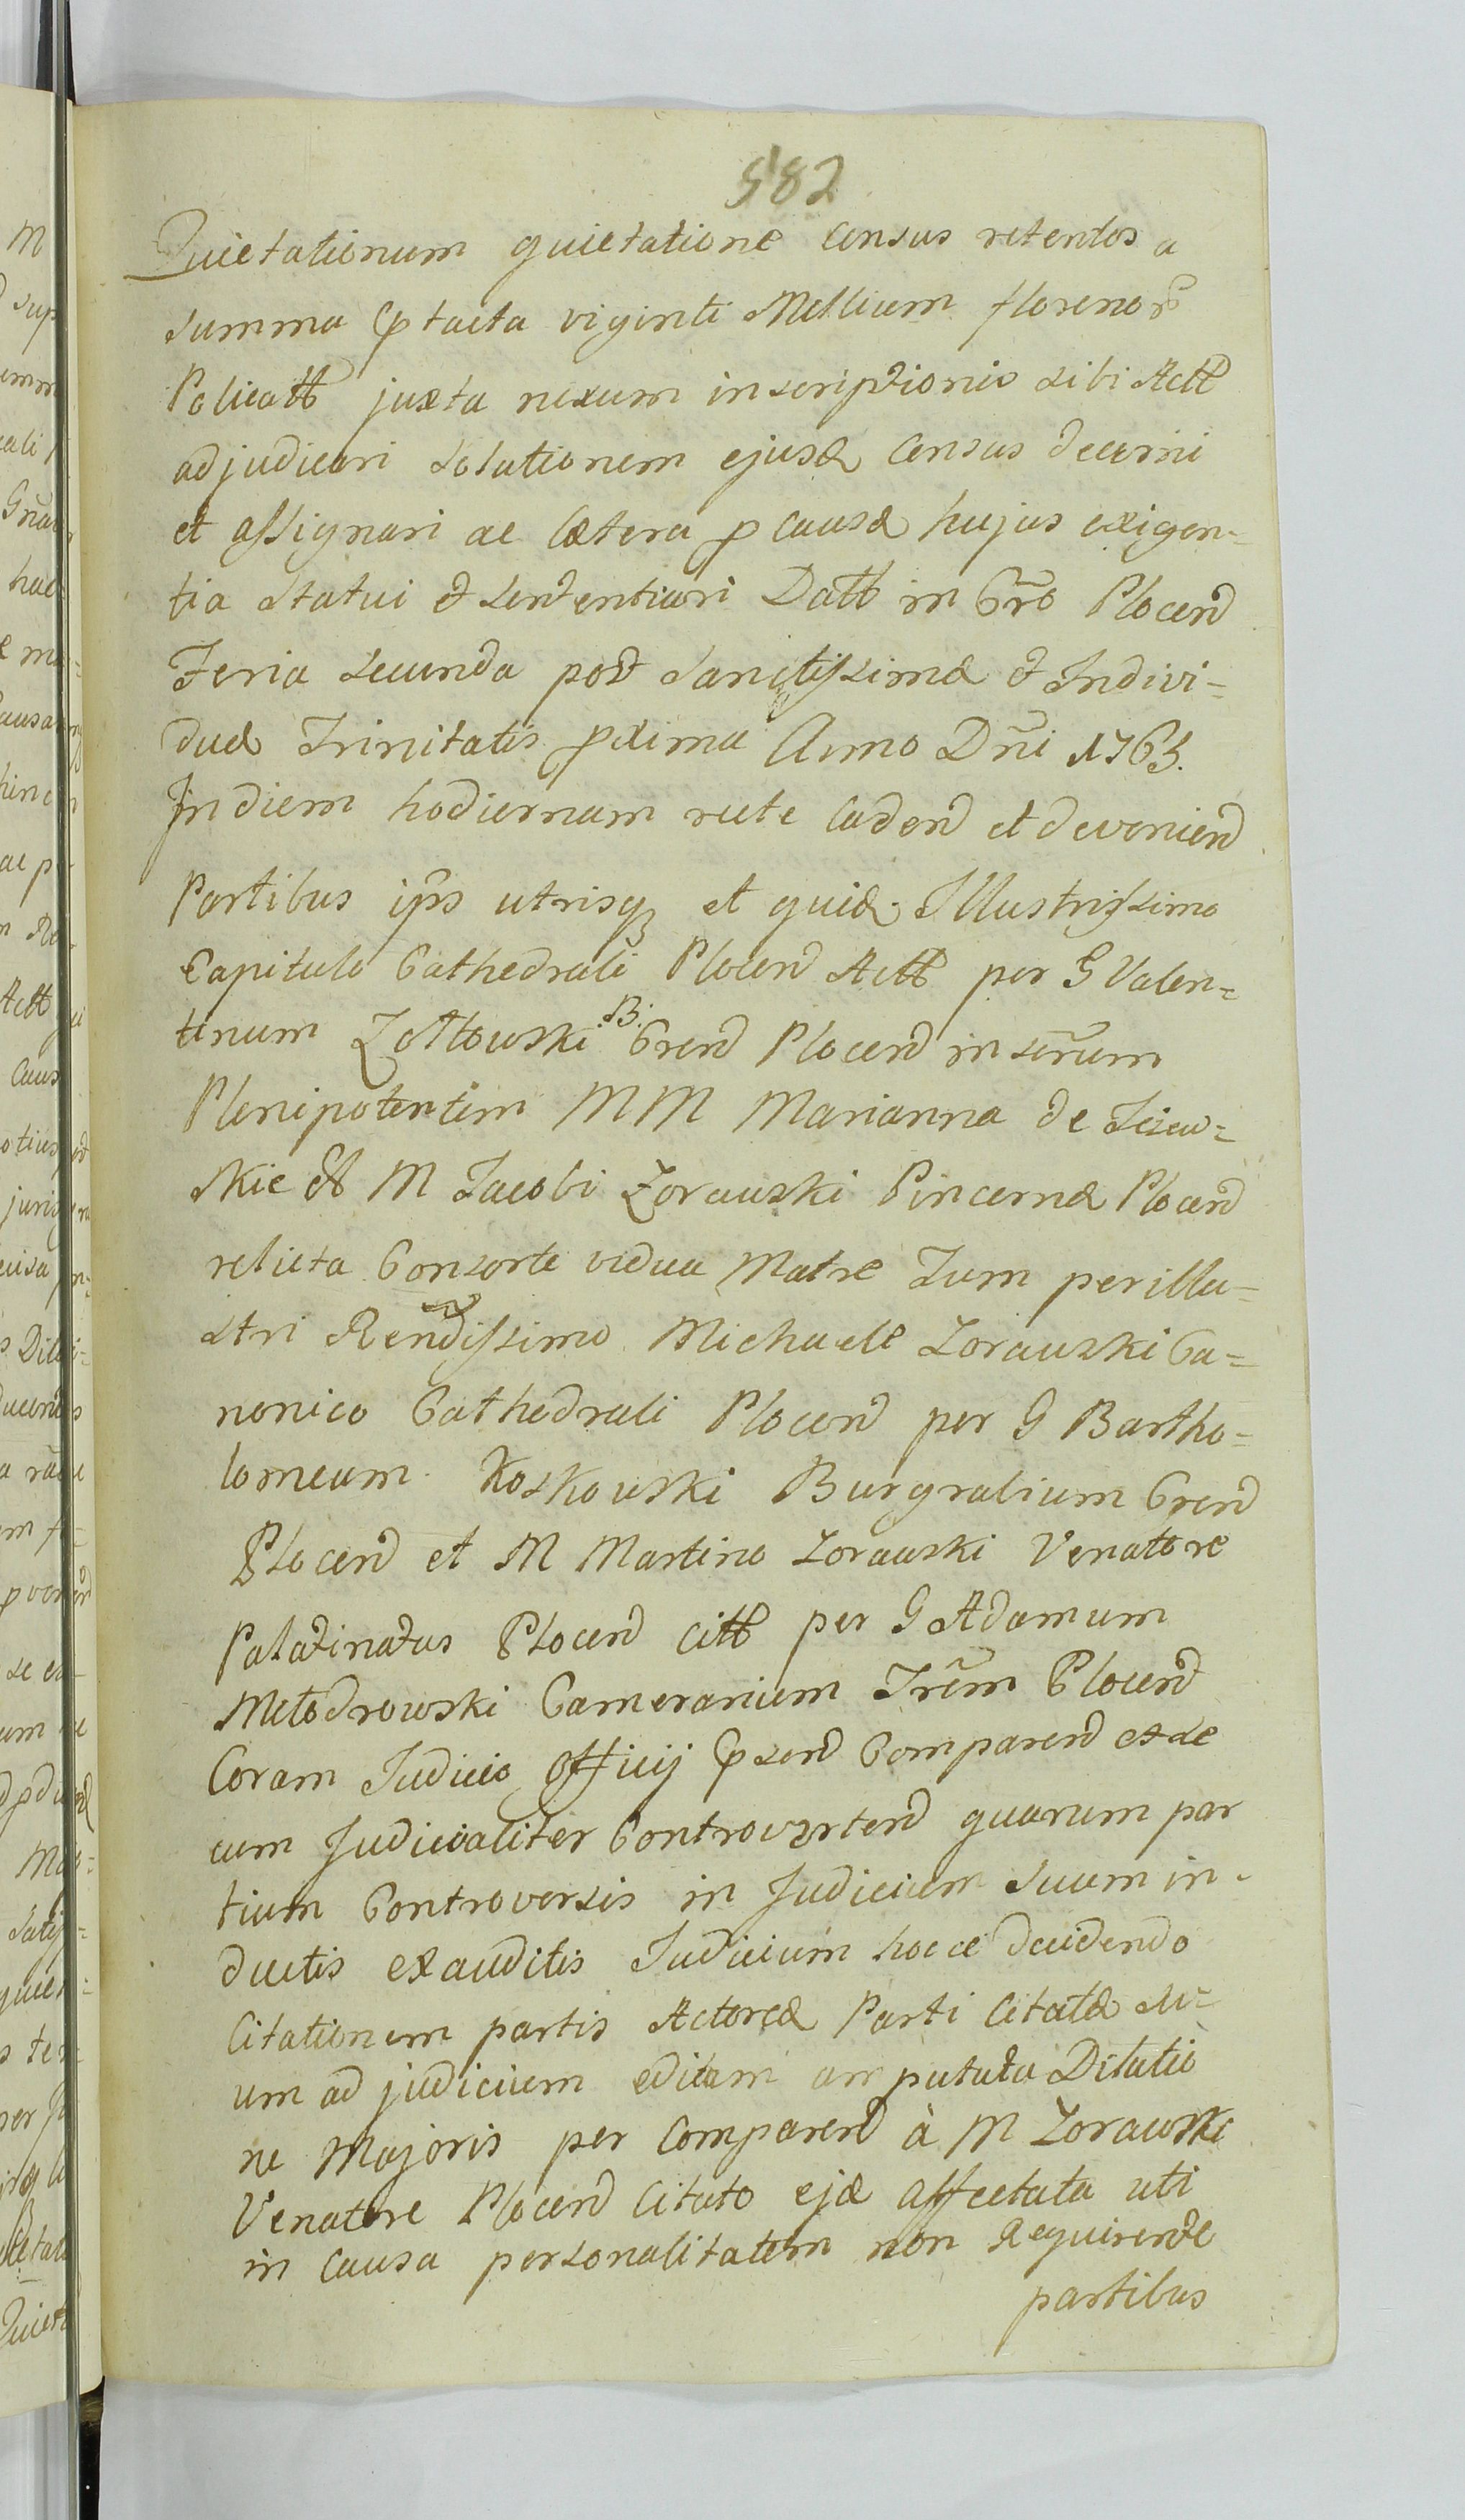 582
Quietationum quietatione Census retentos a
Summa Ptacta viginti Millium florenor
Policatt juxta nexum inscriptionis sibi Actt
adjudicari Solutionem ejusd Census decerni
et assignari ac Cætera p Causæ hujus exigen=
tia Statui et Sententiari Datt in Cro Plocend
Feria Secunda post Sanctissimæ et Indivi=
duæ Trinitatis pxima Anno Dni 1765.
In diem hodiernam recte Cadend et deveniend
Partibus ips utrisq et quid Illustrissimo
Capitulo Cathedrali Plocend Actt per G Valen=
tinum Zottowski B. Grend Plocend in Scrum
Plenipotentem MM Marianna de
skie M Jacobi Zorawski Pincernæ Plocend
relicta Consorte vidua Matre Tum perillu=
stri Rendissimo Michaele Zorawski Ca=
nonico Cathedrali Plocend per G Bartho=
lomeum Koskowski Burgrabium Grend
Plocend et M Martino Zorawski Venatore
Palatinatus Plocend Citt per G Adamum
Młodrowski Camerarium Trem Plocend
Coram Judicio Officij Psend Comparend et se
cum Judicialiter Controvertend quarum par
tium Controversis in Judicium Suum in=
ductis exauditis Judicium hocce decidendo
Citationem partis Actoreæ Parti Citatæ su=
um ad judicium editam amputata Dilatio
ne Majoris per Comparend à M Zorawski
Venatore Plocend Citato ejd affectata uti
in Causa personalitatem non Requirente
partibus